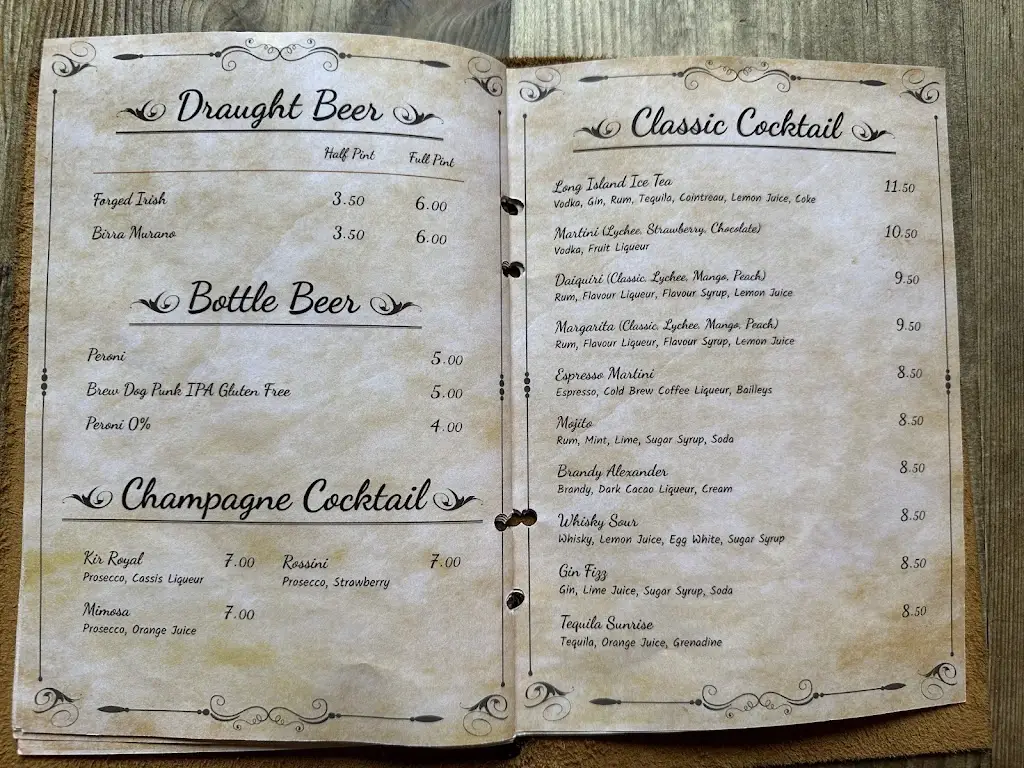 Draught Beer
Half Pint Full Pint
Forged Irish 3.50 6.00
Birra Murano 3.50 6.00
Bottle Beer
Peroni 5.00
Brew Dog Punk IPA Gluten Free 5.00
Peroni 0% 4.00
Champagne Cocktail
Kir Royal 7.00 Rossini 7.00
Prosecco, Cassis Liqueur Prosecco, Strawberry
Mimosa 7.00
Prosecco, Orange Juice
Classic Cocktail
Long Island Ice Tea 11.50
Vodka, Gin, Rum, Tequila, Cointreau, Lemon Juice, Coke
Martini (Lychee, Strawberry, Chocolate) 10.50
Vodka, Fruit Liqueur
Daiquiri (Classic, Lychee, Mango, Peach) 9.50
Rum, Flavour Liqueur, Flavour Syrup, Lemon Juice
Margarita (Classic, Lychee, Mango, Peach) 9.50
Rum, Flavour Liqueur, Flavour Syrup, Lemon Juice
Espresso Martini 8.50
Espresso, Cold Brew Coffee Liqueur, Baileys
Mojito 8.50
Rum, Mint, Lime, Sugar Syrup, Soda
Brandy Alexander 8.50
Brandy, Dark Cacao Liqueur, Cream
Whisky Sour 8.50
Whisky, Lemon Juice, Egg White, Sugar Syrup
Gin Fizz 8.50
Gin, Lime Juice, Sugar Syrup, Soda
Tequila Sunrise 8.50
Tequila, Orange Juice, Grenadine